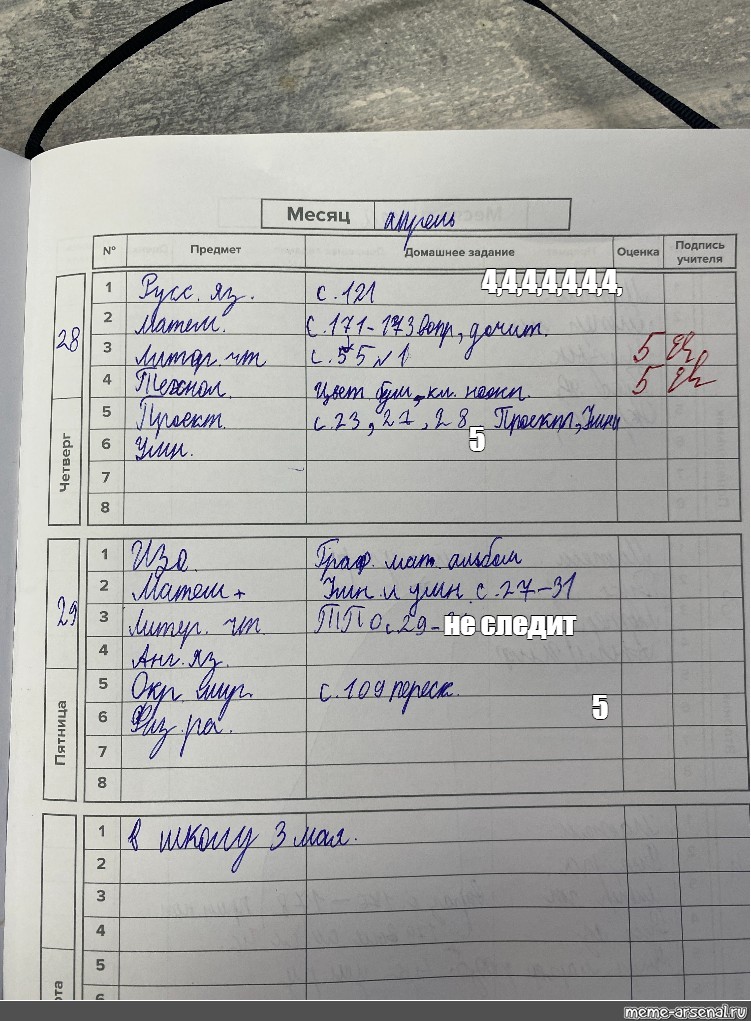 Месяц апрель
№ Предмет Домашнее задание Оценка Подпись учителя
28 Четверг
1 Русс. яз. с. 121 4,4,4,4,4,4,4,
2 Матем. с. 171-173 вопр, дочит.
3 Литер. чт с. 55 №1 5
4 Технол. Цвет бум, кл. ножн. 5
5 Проект. с. 23, 27, 28
6 Умн. 5
7
8
29 Пятница
1 Изо. Граф. мат. альбом
2 Матем + Умн. и умн. с. 27-31
3 Литер. чт. ТПО с. 29- не следит
4 Анг. яз.
5 Окр. мир. с. 109 переск.
6 Физ. ра. 5
7
8
1 В школу 3 мая.
2
3
4
5
6
meme-arsenal.ru